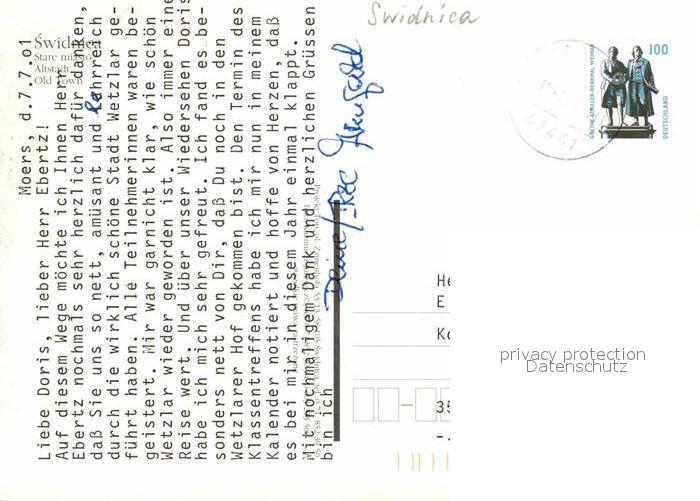 Swidnica
Świdnica
Stare miasto
Altstadt
Old Town
Moers, d.7.7.01
Liebe Doris, lieber Herr Ebertz!
Auf diesem Wege möchte ich Ihnen Herr
Ebertz nochmals sehr herzlich dafür danken,
daß Sie uns so nett, amüsant und lehrreich
durch die wirklich schöne Stadt Wetzlar ge-
führt haben. Alle Teilnehmerinnen waren be-
geistert. Mir war garnicht klar, wie schön
Wetzlar wieder geworden ist. Also immer eine
Reise wert. Und über unser Wiedersehen Doris
habe ich mich sehr gefreut. Ich fand es be-
sonders nett von Dir, daß Du noch in den
Wetzlarer Hof gekommen bist. Den Termin des
Klassentreffens habe ich mir nun in meinem
Kalender notiert und hoffe von Herzen, daß
es bei mir in diesem Jahr einmal klappt.
Mit nochmaligem Dank und herzlichen Grüssen
bin ich
Deine/
100
GOETHE-SCHILLER-DENKMAL WEIMAR
DEUTSCHLAND
47441
He
E
Ko
35
-.
privacy protection
Datenschutz